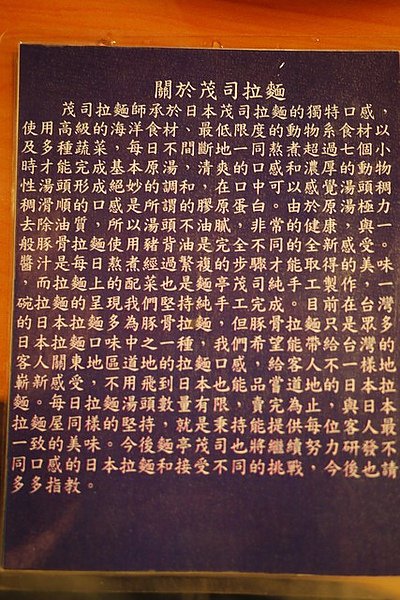 關於茂司拉麵
茂司拉麵師承於日本茂司拉麵的獨特口感，
使用高級的海洋食材、最低限度的動物系食材以
及多種蔬菜，每日不間斷地一同熬煮超過七個小
時才能完成基本原湯，清爽的口感和濃厚的動物
性湯頭形成絕妙的調和，在口中可以感覺湯頭稠
稠滑順的口感是所謂的膠原蛋白。由於原湯極力
去除油質，所以湯頭不油膩，非常健康，與一
般豚骨拉麵使用豬背油是完全不同的全新感受。
醬汁是每日熬煮經過繁複的步驟才能取得的美味
而拉麵上的配菜也是純手工的製作，一
碗拉麵的呈現我們堅持純手工完成。目前在台灣
的日本拉麵多為豚骨拉麵，但茂司拉麵是
日本拉麵口味中之一種，我們希望能帶給台灣的
客人關東地道的拉麵口感，給當地不一樣的
嶄新感受，不用飛到日本也能嘗道地日本拉
麵。每日拉麵湯頭數量有限，賣完為止，與日本
拉麵屋同樣的堅持，就是秉持能提供每位客人最
一致的美味。今後茂司也將繼續努力研發不
同口感的日本拉麵和接受不同的挑戰，今後也請
多多指教。